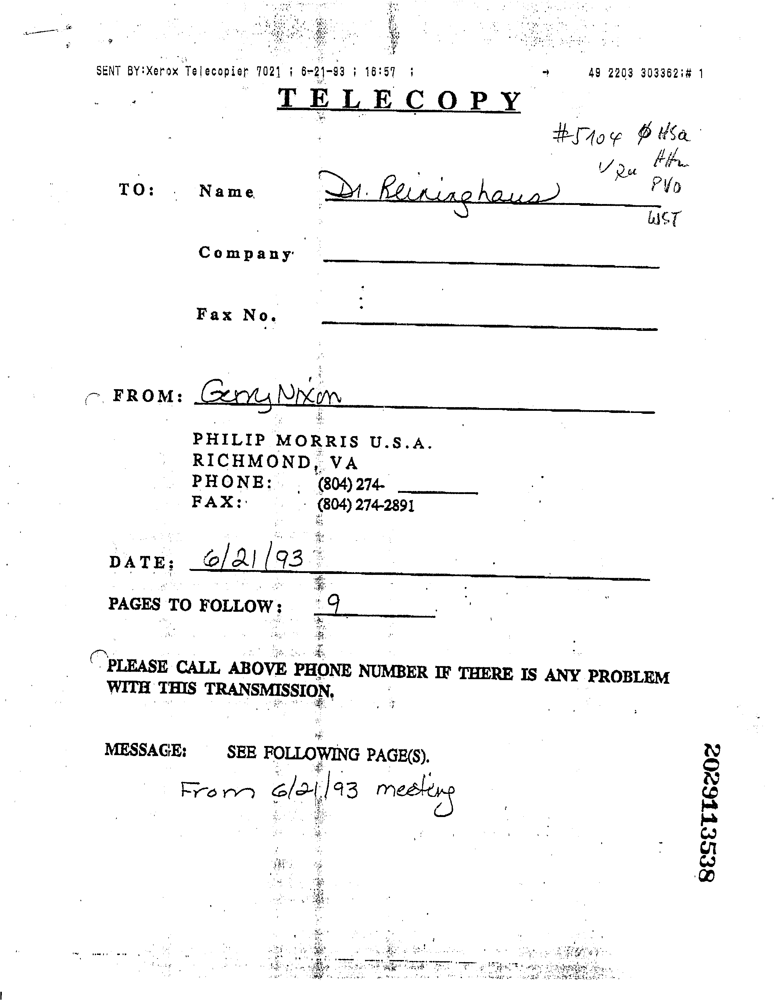 SENT BY:Xerox Telecopier 7021 ; 6-21-93 ; 16:57 ; → 49 2203 303362;# 1
TELECOPY
#5104
TO: Name Dr. Reininghaus
PVO
WST
Company
Fax No.
FROM: Gerry Nixon
PHILIP MORRIS U.S.A.
RICHMOND, VA
PHONE: (804) 274-
FAX: (804) 274-2891
DATE: 6/21/93
PAGES TO FOLLOW: 9
PLEASE CALL ABOVE PHONE NUMBER IF THERE IS ANY PROBLEM
WITH THIS TRANSMISSION.
MESSAGE: SEE FOLLOWING PAGE(S).
From 6/21/93 meeting
2029113538